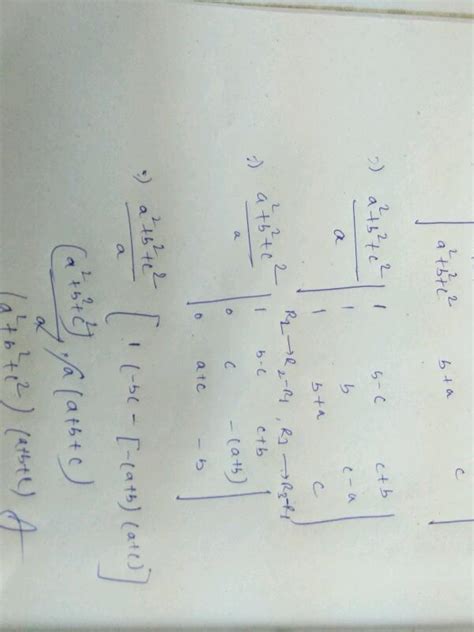 | a²+b²+c² b+a c |
:) a²+b²+c² / a | 1 b-c c+b
1 b c-a
1 b+a c |
R₂→R₂-R₁, R₃→R₃-R₁
:) a²+b²+c² / a | 1 b-c c+b
0 c -(a+b)
0 a+c -b |
:) a²+b²+c² / a [ 1 (-bc - [-(a+b) (a+c)]
(a²+b²+c²) / a × a (a+b+c)
(a²+b²+c²) (a+b+c)